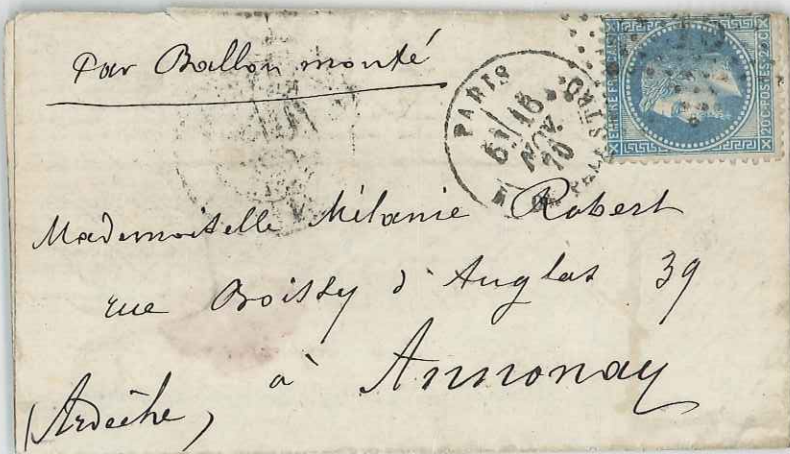 Par Ballon monté
PARIS
6E / 16
NOV.
70
EMPIRE FRANÇAIS
20 C POSTES 20 C
Mademoiselle Mélanie Robert
rue Boissy d'Anglas 39
à Annonay
(Ardèche)